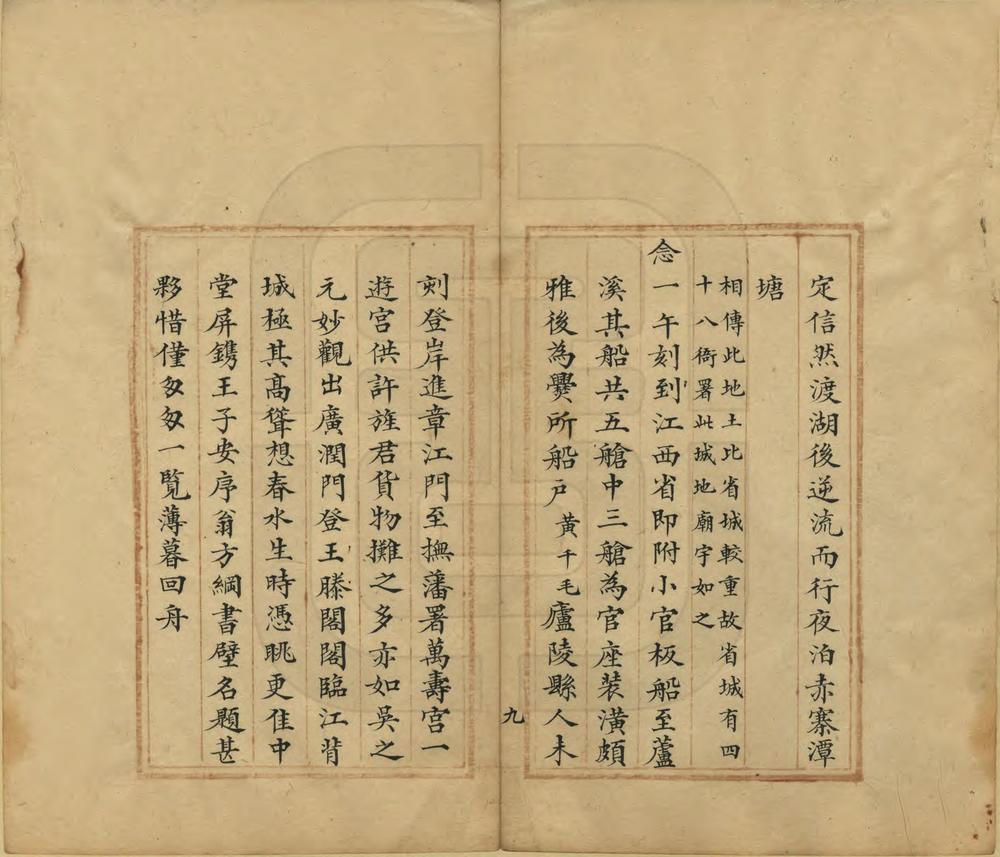 定信然渡湖後逆流而行夜泊赤寨潭
塘
相傳此地土比省城較重故省城有四
十八衙署此城地廟宇如之
念一午刻到江西省即附小官板船至蘆
溪其船共五艙中三艙為官座裝潢頗
雅後為爨所船戶黃千毛廬陵縣人未
九
刻登岸進章江門至撫藩署萬壽宮一
遊宮供許旌君貨物攤之多亦如吳之
元妙觀出廣潤門登王滕閣閣臨江背
城極其高聳想春水生時憑眺更佳中
堂屏鐫王子安序翁方綱書壁名題甚
夥惜僅匆匆一覧薄暮回舟